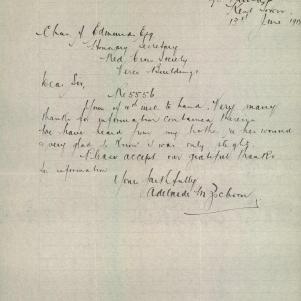 Chas. J Edmunds Esq
Honorary Secretary
Red Cross Society
Verco Buildings
Dear Sir,
Re 5556
Yours of to hand. Very many
thanks for information contained therein
We have heard from my brother, & his wound
very glad to know was only slight
Please accept our grateful thanks
for information
Yours faithfully
Adelaide M